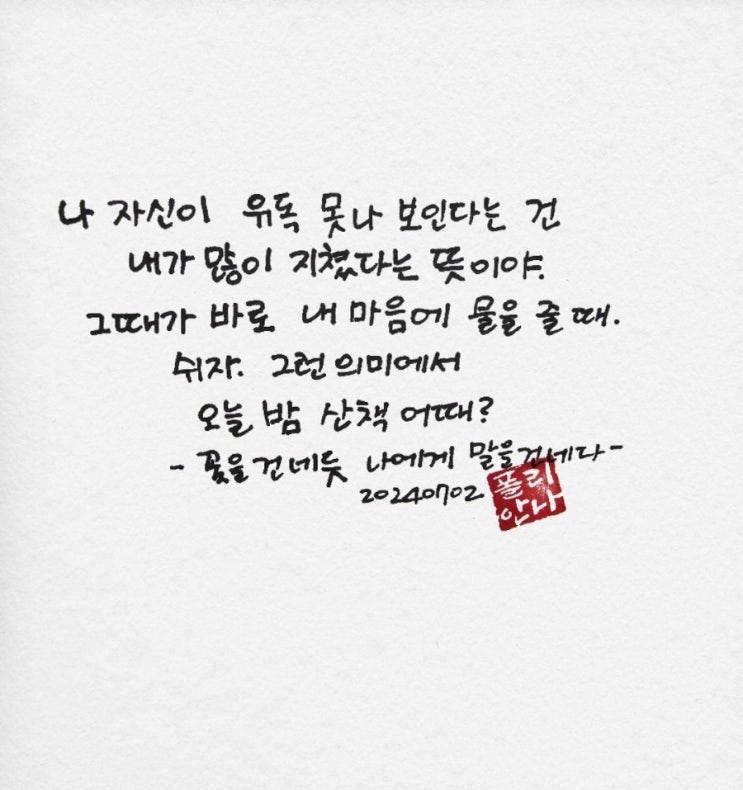 나 자신이 유독 못나 보인다는 건
내가 많이 지쳤다는 뜻이야.
그때가 바로 내 마음에 물을 줄 때.
쉬자. 그런 의미에서
오늘 밤 산책 어때?
- 꽃을 건네듯 나에게 말을 건네다 -
20240702
폴리
안나